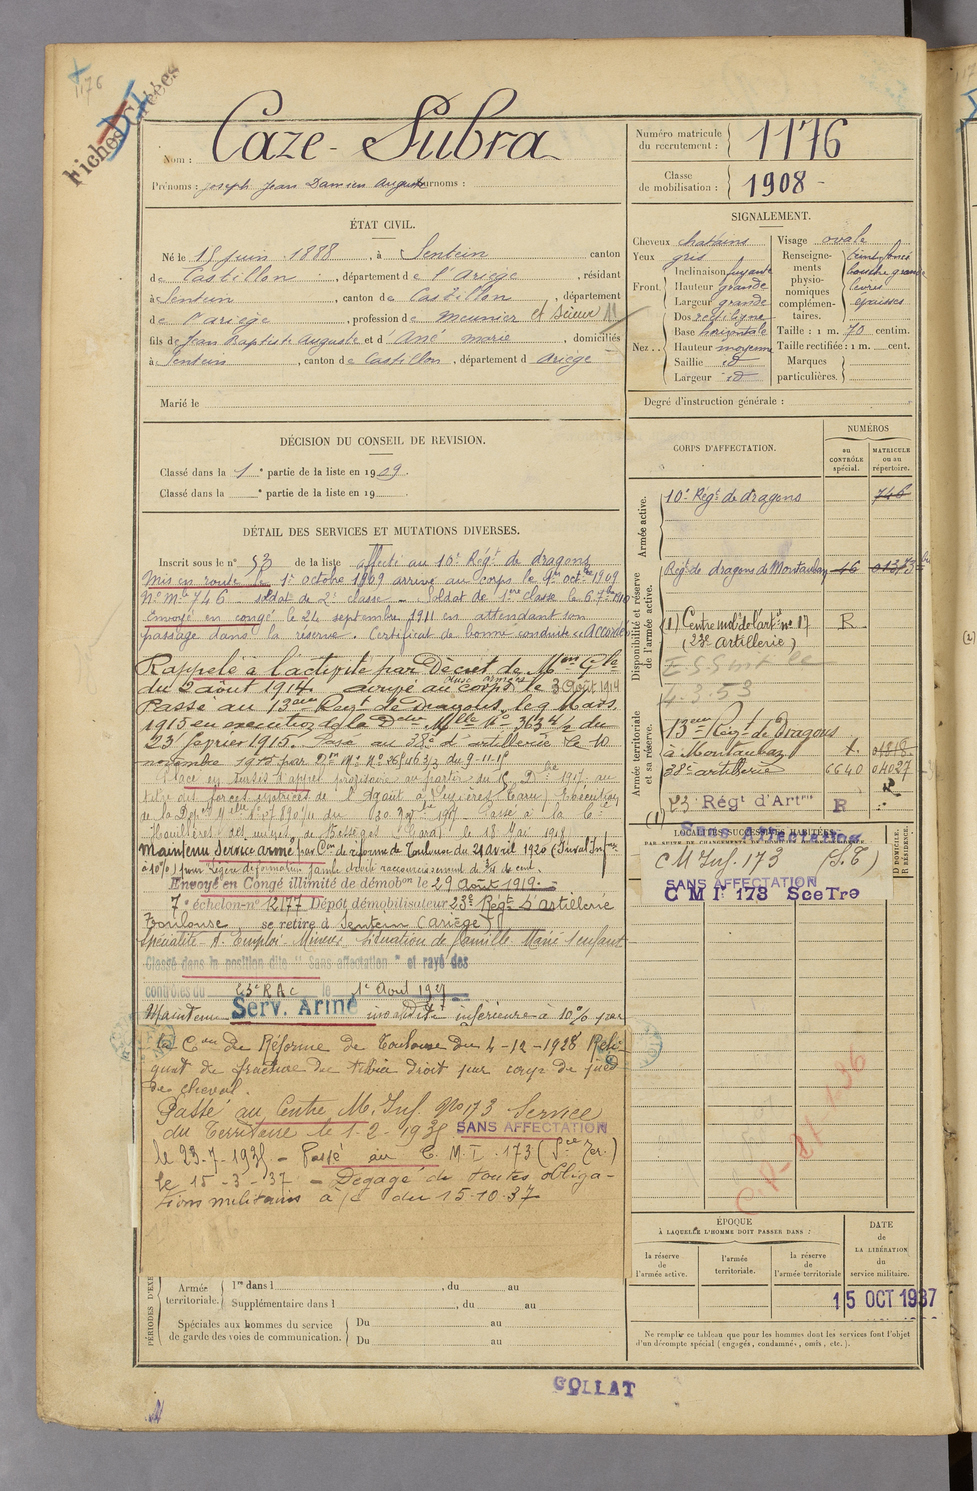 1176
Fiches Créées
Nom : Caze-Subra
Prénoms : Joseph Jean Damien Auguste Surnoms :
Numéro matricule du recrutement : 1176
Classe de mobilisation : 1908
ÉTAT CIVIL.
Né le 15 juin 1888, à Sentein canton
de Castillon, département de l'Ariège, résidant
à Sentein, canton de Castillon, département
de l'Ariège, profession de meunier et scieur
fils de Jean Baptiste Auguste et d' Ané marie, domiciliés
à Sentein, canton de Castillon, département d Ariège
Marié le
SIGNALEMENT.
Cheveux chatains
Yeux gris
Front. Inclinaison fuyante
Hauteur grande
Largeur grande
Nez.. Dos rectiligne
Base horizontale
Hauteur moyenne
Saillie id
Largeur id
Visage ovale
Renseignements physionomiques complémentaires. teint foncé
bouche grande
levres
épaisses
Taille : 1 m. 70 centim.
Taille rectifiée : 1 m. cent.
Marques particulières.
Degré d'instruction générale :
DÉCISION DU CONSEIL DE REVISION.
Classé dans la 1e partie de la liste en 1909.
Classé dans la e partie de la liste en 19
DÉTAIL DES SERVICES ET MUTATIONS DIVERSES.
Inscrit sous le n° 53 de la liste affecté au 10e Régt de dragons
Mis en route le 1er octobre 1909 arrivé au corps le 1er octbre 1909
N° Mle 746 soldat de 2e classe — Soldat de 1ère classe le 6 7bre 1910
Envoyé en congé le 24 septembre 1911 en attendant son
passage dans la réserve. Certificat de bonne conduite "Accordé"
Rappelé à l'activité par Décret de Mon Gle
du 2 août 1914 arrivé au corps le 3 Août 1914
Passé au 13eme Regt de Dragons, le 9 Mars
1915 en exécution de la Deon Mlle N° 3634 ½ du
23 février 1915. Passé au 38e d'artillerie le 10
novembre 1915 par Don Mle N° du 9-11-15
Placé en sursis d'appel
titre des forces motrices de l'Agout à
Houillères des mines de Bessèges (Gard) le 18 Mai 1918
Maintenu Service armé par Con de réforme de Toulouse du 21 avril 1920 (Inval. Infre
à 10%) pour légère déformation jambe droite raccourcissement de ¾ de cent.
Envoyé en Congé illimité de démobon le 29 Août 1919.
7e échelon-n° 12177 Dépôt démobilisateur 23e Regt d'artillerie
Toulouse se retire à Sentein (Ariège)
Spécialité - A. Emploi - Mineur Situation de famille Marié 1 enfant
Classé dans la position dite "Sans affectation" et rayé des
contrôles du 23e RAC le 1er Aout 1927
Maintenu Serv. Armé invalidité inférieure à 10% par
la Con de Réforme de Toulouse du 4-12-1928 Reli-
quat de fracture du tibia droit par coup de pied
de cheval.
Passé au Centre M. Inf. No 173 Service
du Territoire le 1-2-1935 SANS AFFECTATION
le 23-7-1935 - Passé au C.M.I. 173 (Sce Ter.)
le 15-3-37 - Dégagé de toutes obliga-
tions militaires à / du 15.10.37
CORPS D'AFFECTATION.
NUMÉROS
au CONTRÔLE spécial.
MATRICULE ou au répertoire.
Armée active.
10e Régt de dragons 746
Disponibilité et réserve de l'armée active.
Régt de dragons de Montauban 16
(1) Centre mob. de l'artie n° 17 R
(23e artillerie)
4.3.53
Armée territoriale et sa réserve.
13eme Régt de Dragons
à Montauban
38e artillerie 6640 04027
(1) 23 Régt d'Artie R
Sans Affectation
LOCALITÉS SUCCESSIVES HABITÉES
PAR SUITE DE CHANGEMENTS DE DOMICILE OU DE RÉSIDENCE.
D DOMICILE. R RÉSIDENCE.
C M Inf. 173 (S.T)
SANS AFFECTATION
C M I 173 Sce Tre
ÉPOQUE
À LAQUELLE L'HOMME DOIT PASSER DANS :
la réserve de l'armée active.
l'armée territoriale.
la réserve de l'armée territoriale
DATE de LA LIBÉRATION du service militaire.
15 OCT 1937
PÉRIODES D'EXE
Armée territoriale. 1re dans l , du au
Supplémentaire dans l , du au
Spéciales aux hommes du service de garde des voies de communication. Du au
Du au
Ne remplir ce tableau que pour les hommes dont les services font l'objet
d'un décompte spécial (engagés, condamnés, omis, etc.).
GOLLAT